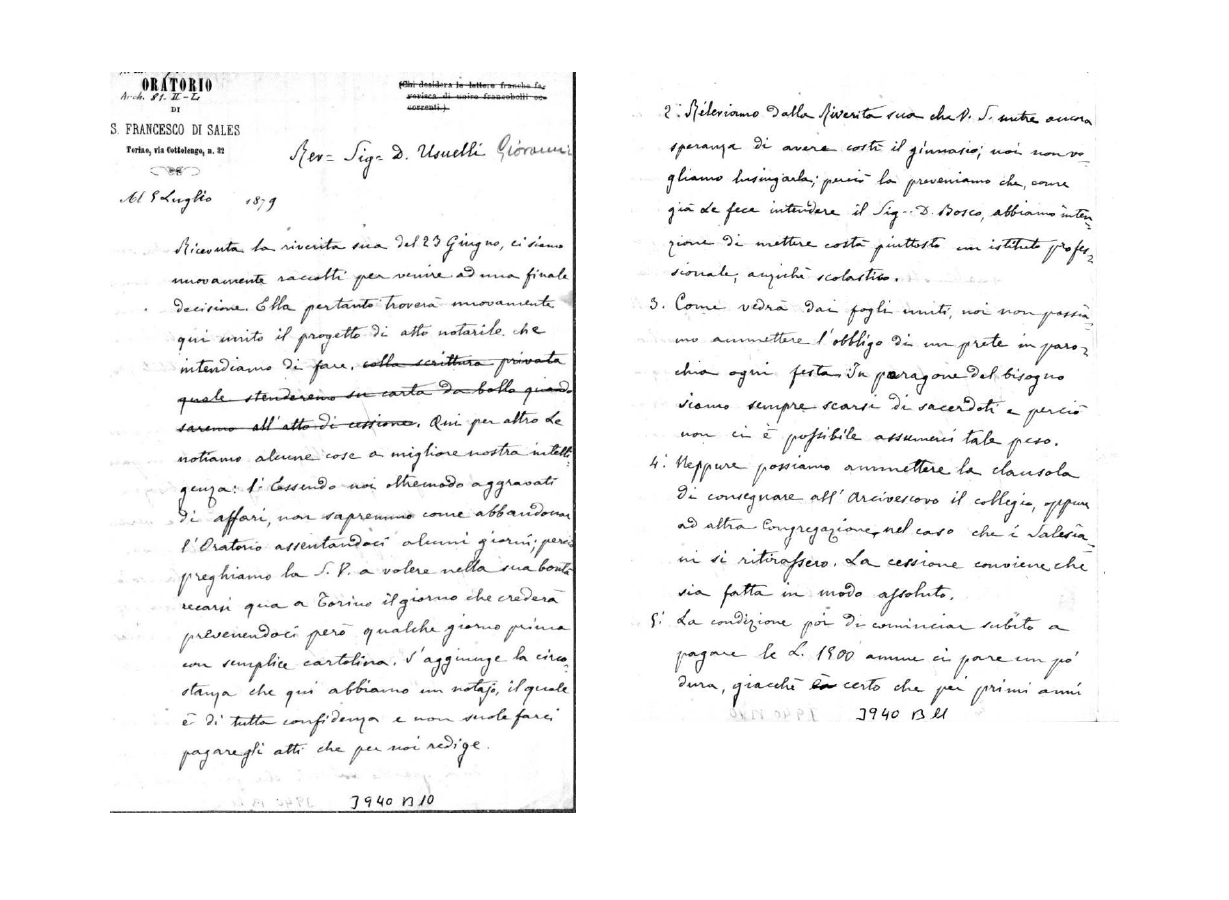 ORATORIO
Arch. 81. II - L
DI
S. FRANCESCO DI SALES
Torino, via Cottolengo, n. 32
(Chi desidera le lettere franche fa-
vorisca di unire francobolli oc-
correnti.)
Rev= Sig= D. Usuelli Giovanni
Al 5 Luglio 1879
Ricevuta la riverita sua del 23 Giugno, ci siamo
nuovamente raccolti per venire ad una finale
decisione. Ella pertanto troverà nuovamente
qui unito il progetto di atto notarile che
intendiamo di fare, colla scrittura privata
quale stenderemo su carta da bollo quando
saremo all'atto di cessione. Qui per altro Le
notiamo alcune cose a migliore nostra intelli-
genza: 1° Essendo noi oltremodo aggravati
di affari, non sapremmo come abbandonar
l'Oratorio assentandoci alcuni giorni; perciò
preghiamo la S. V. a volere nella sua bontà
recarsi qua a Torino il giorno che crederà
prevenendoci però qualche giorno prima
con semplice cartolina. S'aggiunge la circo-
stanza che qui abbiamo un notajo, il quale
è di tutta confidenza e non suole farci
pagare gli atti che per noi redige.
3940 B 10
2° Rileviamo dalla Riverita sua che V. S. nutre ancora
speranza di avere costì il ginnasio; noi non vo-
gliamo lusingarla; perciò la preveniamo che, come
già Le fece intendere il Sig. D. Bosco, abbiamo inten-
zione di mettere costà piuttosto un istituto profes-
sionale, anzichè scolastico.
3. Come vedrà dai fogli uniti, noi non possia-
mo ammettere l'obbligo di un prete in paro-
chia ogni festa. In paragone del bisogno
siamo sempre scarsi di sacerdoti e perciò
non ci è possibile assumerci tale peso.
4° Neppure possiamo ammettere la clausola
di consegnare all'Arcivescovo il collegio, oppure
ad altra Congregazione, nel caso che i Salesia-
ni si ritirassero. La cessione conviene che
sia fatta in modo assoluto.
5° La condizione poi di cominciar subito a
pagare le L. 1900 annue ci pare un pò
dura, giacchè certo che pei primi anni
3940 B 11